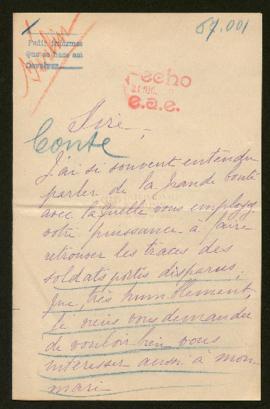 57.001
Pedir informes
que se hace asi
hecho
e.a.e.
Sire,
Conte
J'ai si souvent entendu
parler de la grande bonté
avec laquelle vous employez
votre puissance à faire
retrouver les traces des
soldats portés disparus,
que, très humblement,
je viens vous demander
de vouloir bien vous
intéresser aussi à mon
mari